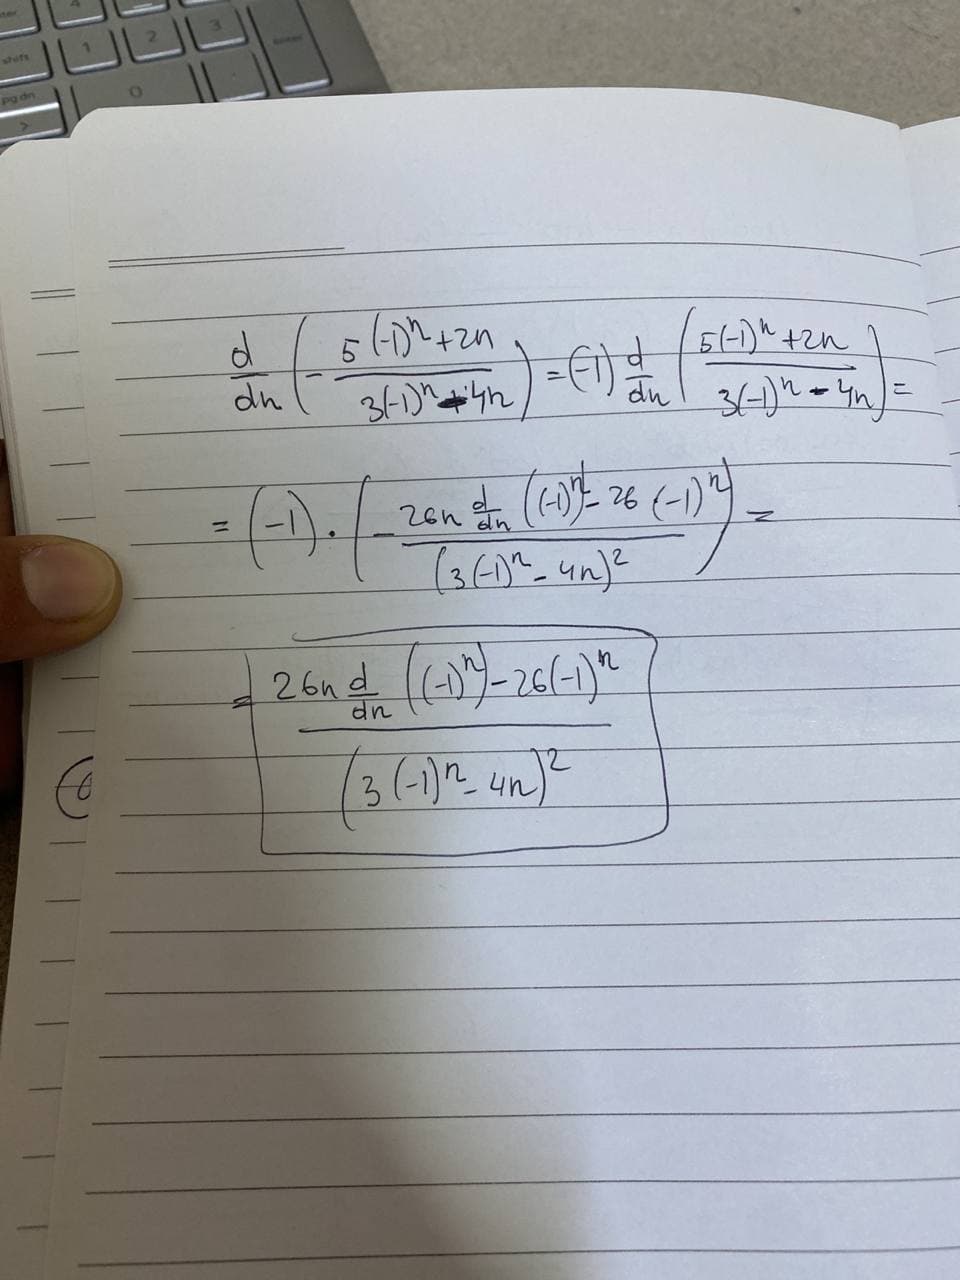 4
1 2 3
shift enter
pg dn 0
>
d/dn (- (5(-1)^n+2n)/(3(-1)^n-4n)) = (-1) d/dn ((5(-1)^n+2n)/(3(-1)^n-4n)) =
= (-1) · (- (26n d/dn ((-1)^n) - 26(-1)^n)/(3(-1)^n - 4n)^2) =
= (26n d/dn ((-1)^n) - 26(-1)^n)/(3(-1)^n - 4n)^2